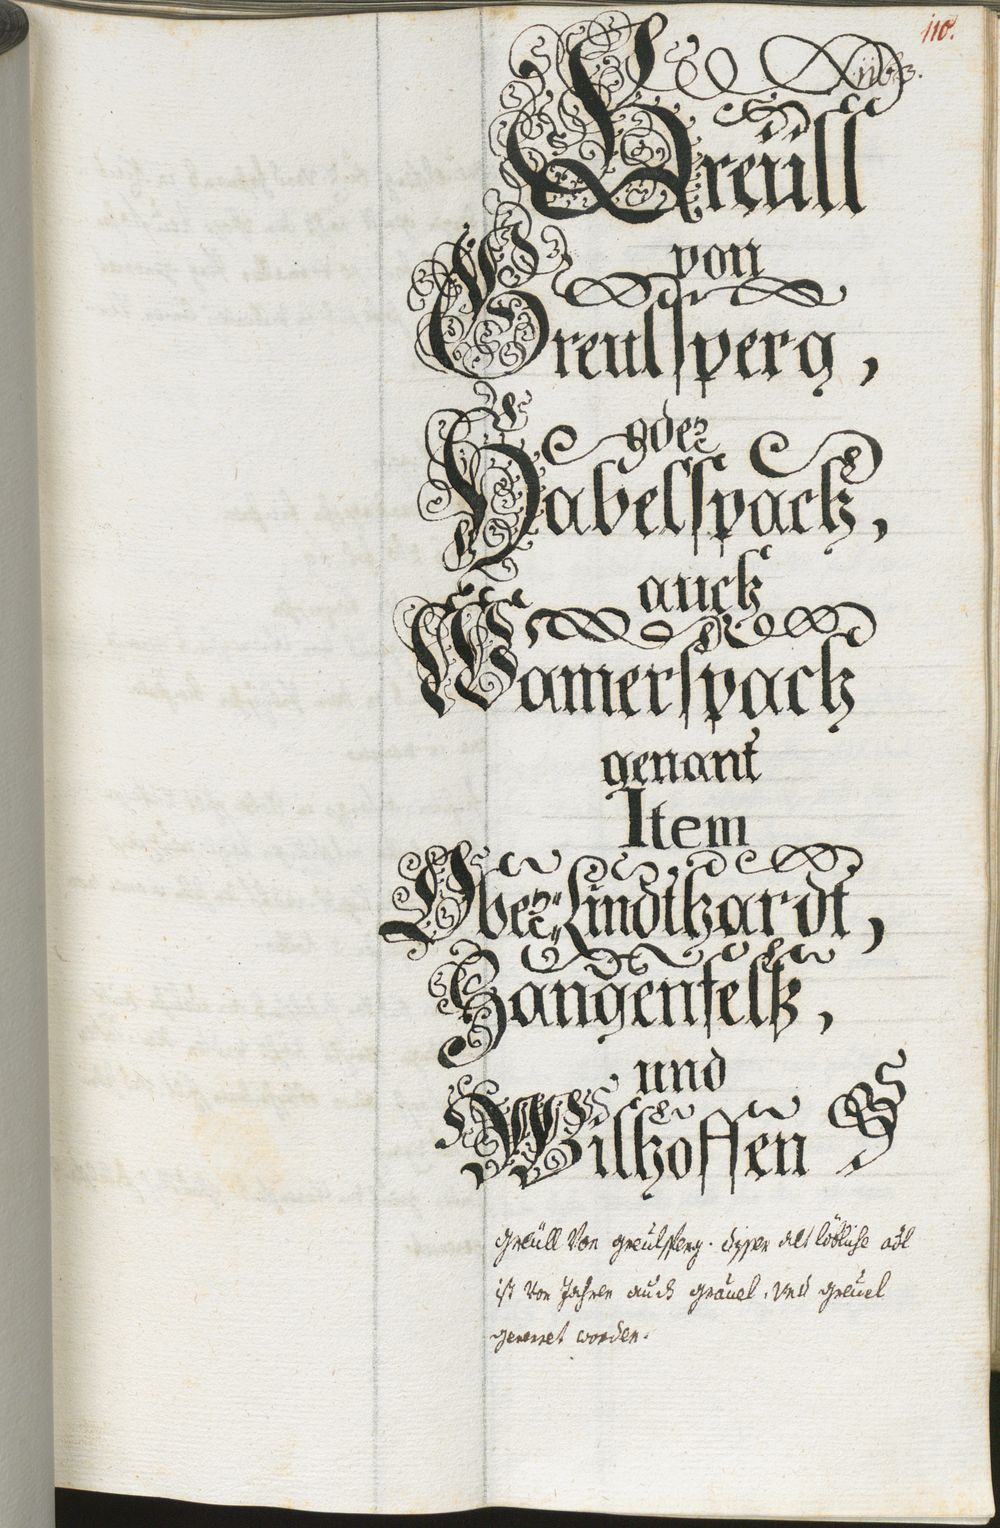 110.
Greüll
von
der
Greulsperg,
oder
Habelspach,
auch
Wamerspach
genant
Item
Ober=Lindthardt,
Zangenfelß,
und
Wilhoffen
Greüll Von greulsperg. diser alt löbliche adl
ist Von Jahren auch gräuel, und greüel
genenet worden.